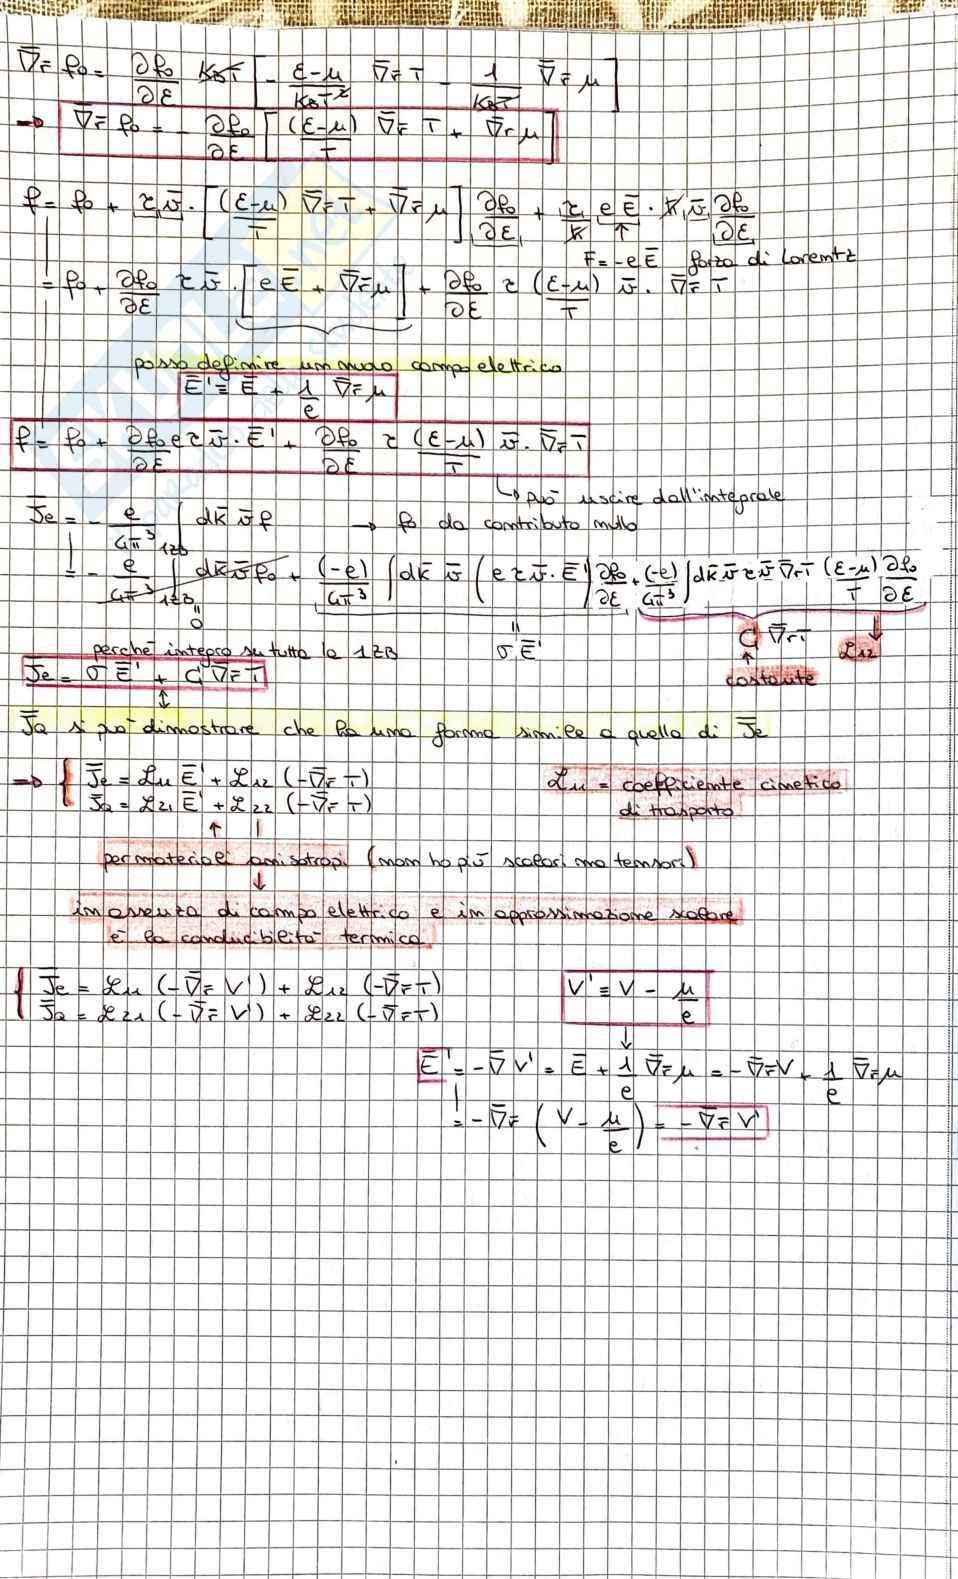 ∇̄r̄ f₀ = ∂f₀/∂ε K_BT [ - (ε-μ)/(K_BT²) ∇̄r̄ T - 1/(K_BT) ∇̄r̄ μ ]
→ ∇̄r̄ f₀ = - ∂f₀/∂ε [ (ε-μ)/T ∇̄r̄ T + ∇̄r μ ]
f = f₀ + τ v̄ · [ (ε-μ)/T ∇̄r̄ T + ∇̄r̄ μ ] ∂f₀/∂ε + τ/ħ e Ē · ħ v̄ ∂f₀/∂ε
F̄ = -e Ē forza di Lorentz
= f₀ + ∂f₀/∂ε τ v̄ · [ e Ē + ∇̄r̄ μ ] + ∂f₀/∂ε τ (ε-μ)/T v̄ · ∇̄r̄ T
posso definire un nuovo campo elettrico
Ē' ≡ Ē + 1/e ∇̄r̄ μ
f = f₀ + ∂f₀/∂ε e τ v̄ · Ē' + ∂f₀/∂ε τ (ε-μ)/T v̄ · ∇̄r̄ T
↳ può uscire dall'integrale
J̄e = - e/4π³ ∫1ZB dk̄ v̄ f → f₀ da contributo nullo
= - e/4π³ ∫1ZB dk̄ v̄ f₀ + (-e)/4π³ ∫ dk̄ v̄ ( e τ v̄ · Ē' ) ∂f₀/∂ε + (-e)/4π³ ∫ dk̄ v̄ τ v̄ ∇̄r T (ε-μ)/T ∂f₀/∂ε
" 0 " σ Ē' C ∇̄r T L12
perché integro su tutta la 1ZB
costante
J̄e = σ Ē' + C ∇̄r̄ T
↕
J̄Q si può dimostrare che ha una forma simile a quella di J̄e
→ { J̄e = L11 Ē' + L12 (-∇̄r̄ T)
J̄Q = L21 Ē' + L22 (-∇̄r̄ T)
L11 = coefficiente cinetico
di trasporto
per materiali anisotropi (non ho più scalari ma tensori)
↓
in assenza di campo elettrico e in approssimazione scalare
è la conducibilità termica
{ J̄e = L11 (-∇̄r̄ V') + L12 (-∇̄r̄ T)
J̄Q = L21 (-∇̄r̄ V') + L22 (-∇̄r̄ T)
V' ≡ V - μ/e
↓
Ē' = -∇̄ V' = Ē + 1/e ∇̄r̄ μ = -∇̄r̄ V + 1/e ∇̄r̄ μ
= -∇̄r̄ ( V - μ/e ) = -∇̄r̄ V'